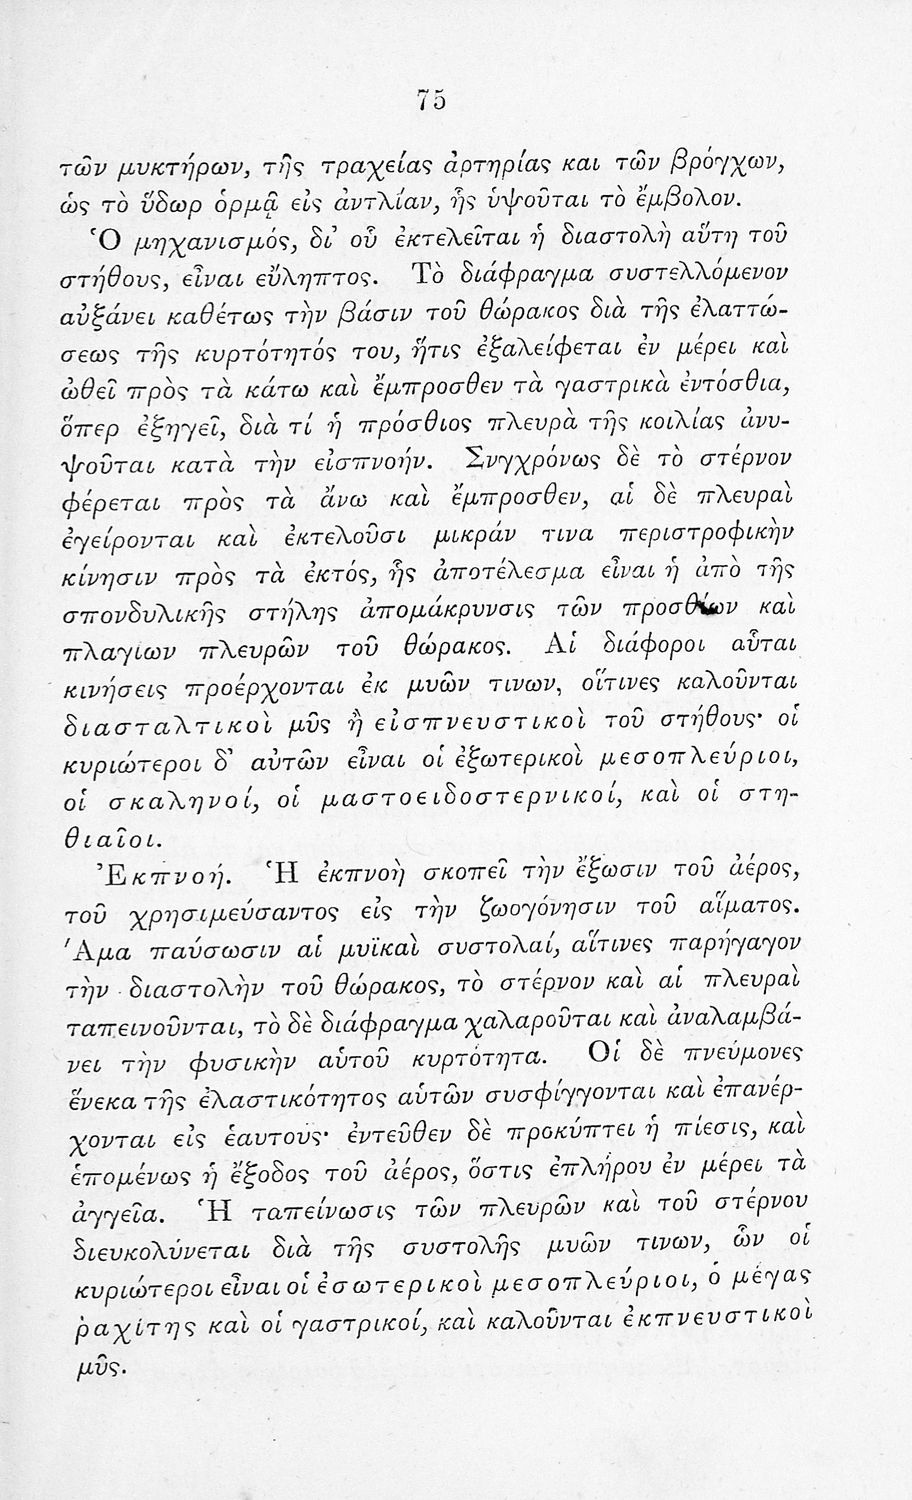 75
τῶν μυκτήρων, τῆς τραχείας ἀρτηρίας και τῶν βρόγχων,
ὡς τὸ ὕδωρ ὁρμᾷ εἰς ἀντλίαν, ἧς ὑψοῦται τὸ ἔμβολον.
Ὁ μηχανισμός, δι᾽ οὗ ἐκτελεῖται ἡ διαστολὴ αὕτη τοῦ
στήθους, εἶναι εὔληπτος. Τὸ διάφραγμα συστελλόμενον
αὐξάνει καθέτως τὴν βάσιν τοῦ θώρακος διὰ τῆς ἐλαττώ-
σεως τῆς κυρτότητός του, ἥτις ἐξαλείφεται ἐν μέρει καὶ
ὠθεῖ πρὸς τὰ κάτω καὶ ἔμπροσθεν τὰ γαστρικὰ ἐντόσθια,
ὅπερ ἐξηγεῖ, διὰ τί ἡ πρόσθιος πλευρὰ τῆς κοιλίας ἀνυ-
ψοῦται κατὰ τὴν εἰσπνοήν. Συγχρόνως δὲ τὸ στέρνον
φέρεται πρὸς τὰ ἄνω καὶ ἔμπροσθεν, αἱ δὲ πλευραὶ
ἐγείρονται καὶ ἐκτελοῦσι μικράν τινα περιστροφικὴν
κίνησιν πρὸς τὰ ἐκτός, ἧς ἀποτέλεσμα εἶναι ἡ ἀπὸ τῆς
σπονδυλικῆς στήλης ἀπομάκρυνσις τῶν προσθίων καὶ
πλαγιων πλευρῶν τοῦ θώρακος. Αἱ διάφοροι αὗται
κινήσεις προέρχονται ἐκ μυῶν τινων, οἵτινες καλοῦνται
διασταλτικοὶ μῦς ἢ εἰσπνευστικοὶ τοῦ στήθους· οἱ
κυριώτεροι δ᾽ αὐτῶν εἶναι οἱ ἐξωτερικοὶ μεσοπλεύριοι,
οἱ σκαληνοί, οἱ μαστοειδοστερνικοί, καὶ οἱ στη-
θιαῖοι.
Ἐκπνοή. Ἡ ἐκπνοὴ σκοπεῖ τὴν ἔξωσιν τοῦ ἀέρος,
τοῦ χρησιμεύσαντος εἰς τὴν ζωογόνησιν τοῦ αἵματος.
Ἅμα παύσωσιν αἱ μυϊκαὶ συστολαί, αἵτινες παρήγαγον
τὴν διαστολὴν τοῦ θώρακος, τὸ στέρνον καὶ αἱ πλευραὶ
ταπεινοῦνται, τὸ δὲ διάφραγμα χαλαροῦται καὶ ἀναλαμβά-
νει τὴν φυσικὴν αὑτοῦ κυρτότητα. Οἱ δὲ πνεύμονες
ἕνεκα τῆς ἐλαστικότητος αὑτῶν συσφίγγονται καὶ ἐπανέρ-
χονται εἰς ἑαυτους· ἐντεῦθεν δὲ προκύπτει ἡ πίεσις, καὶ
ἑπομένως ἡ ἔξοδος τοῦ ἀέρος, ὅστις ἐπλήρου ἐν μέρει τὰ
ἀγγεῖα. Ἡ ταπείνωσις τῶν πλευρῶν καὶ τοῦ στέρνου
διευκολύνεται διὰ τῆς συστολῆς μυῶν τινων, ὧν οἱ
κυριώτεροι εἶναι οἱ ἐσωτερικοὶ μεσοπλεύριοι, ὁ μέγας
ῥαχίτης καὶ οἱ γαστρικοί, καὶ καλοῦνται ἐκπνευστικοὶ
μῦς.